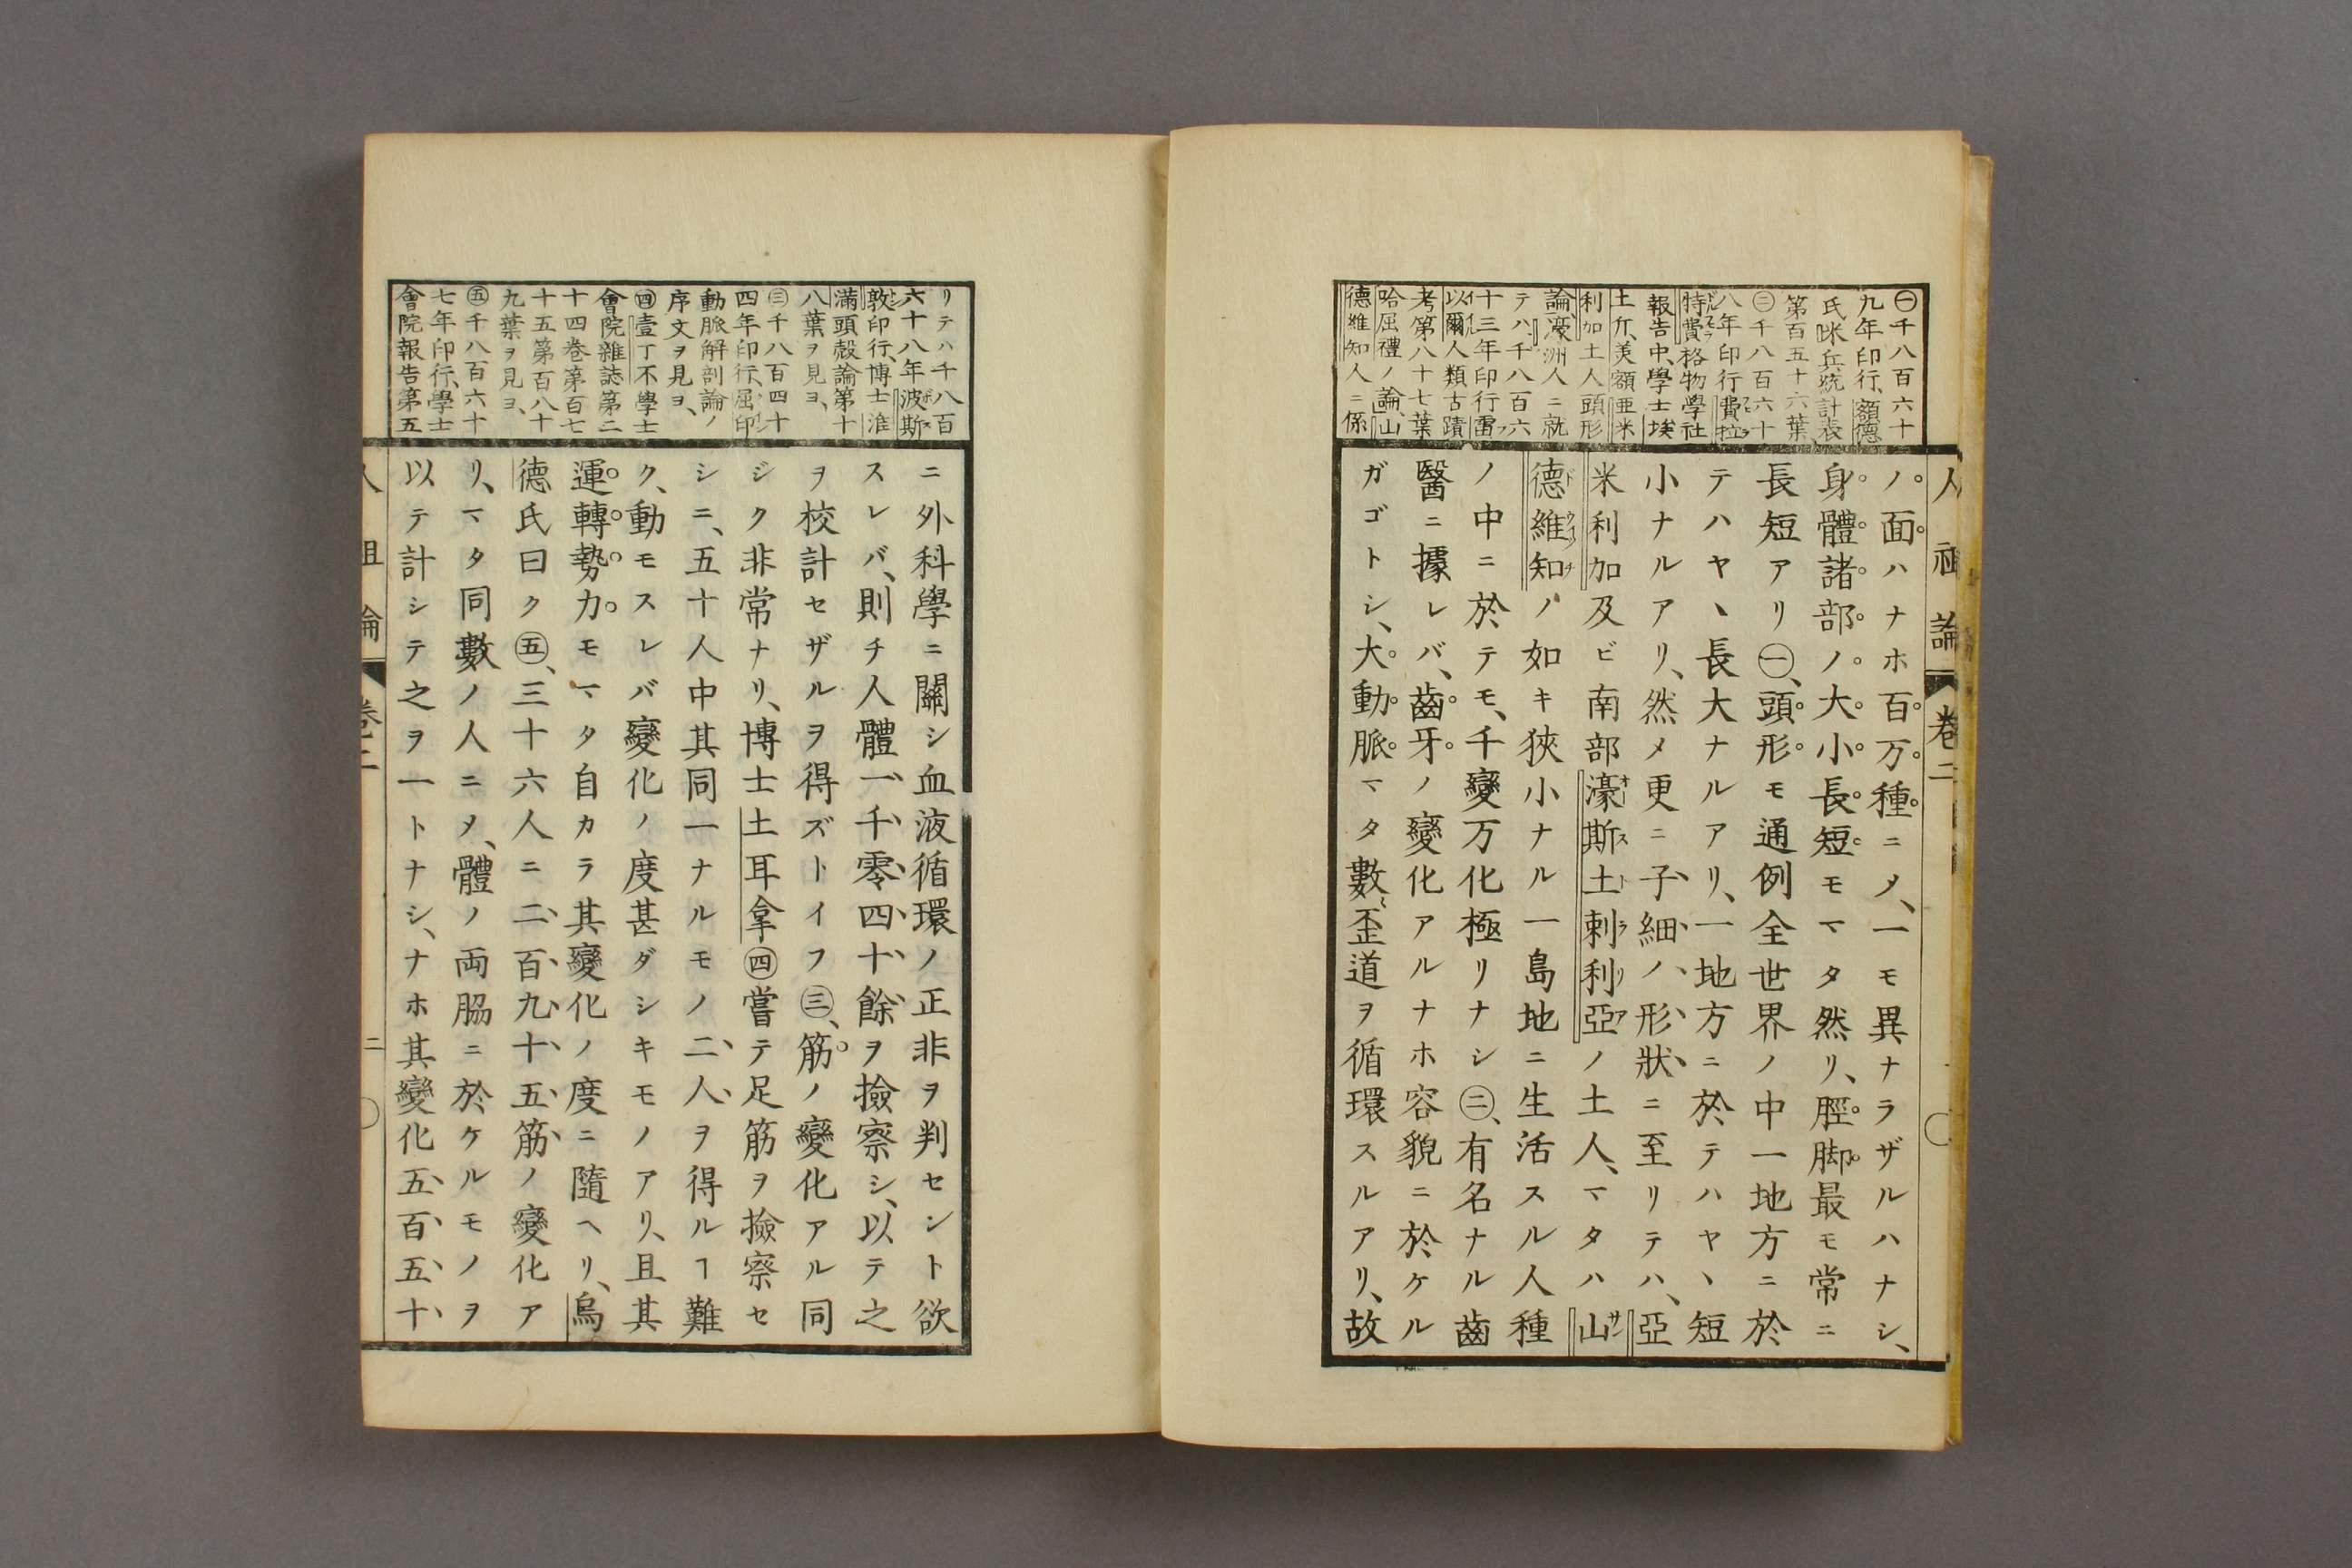 人祖論 卷二 一
㊀千八百六十
九年印行、額德
氏咪兵統計表
第百五十六葉
㊁千八百六十
八年印行費拉
特費格物學社
報告中、學士埃
土斤、美額亜米
利加土人頭形
論、濠洲人ニ就
テハ、千八百六
十三年印行雷
以爾人類古蹟
考第八十七葉
哈屈禮ノ論、山
德維知人ニ係
ノ面ハナホ百万種ニメ、一モ異ナラザルハナシ、
身體諸部ノ大小長短モマタ然リ、脛脚最モ常ニ
長短アリ㊀、頭形モ通例全世界ノ中一地方ニ於
テハヤヽ長大ナルアリ、一地方ニ於テハヤヽ短
小ナルアリ、然メ更ニ子細ノ形狀ニ至リテハ、亞
米利加及ビ南部濠斯土剌利亞ノ土人、マタハ山
德維知ノ如キ狹小ナル一島地ニ生活スル人種
ノ中ニ於テモ、千變万化極リナシ㊁、有名ナル齒
醫ニ據レバ、齒牙ノ變化アルナホ容貌ニ於ケル
ガゴトシ、大動脈マタ數〻歪道ヲ循環スルアリ、故
リテハ千八百
六十八年波斯
敦印行、博士淮
滿頭殼論第十
八葉ヲ見ヨ、
㊂千八百四十
四年印行、屈印
動脈解剖論ノ
序文ヲ見ヨ、
㊃壹丁不學士
會院雜誌第二
十四卷第百七
十五第百八十
九葉ヲ見ヨ、
㊄千八百六十
七年印行、學士
會院報告第五
ニ外科學ニ關シ血液循環ノ正非ヲ判セント欲
スレバ、則チ人體一千零四十餘ヲ撿察シ、以テ之
ヲ校計セザルヲ得ズトイフ㊂、筋ノ變化アル同
ジク非常ナリ、博士土耳拿㊃嘗テ足筋ヲ撿察セ
シニ、五十人中其同一ナルモノ二人ヲ得ルヿ難
ク、動モスレバ變化ノ度甚ダシキモノアリ、且其
運轉勢力モマタ自カラ其變化ノ度ニ隨ヘリ、烏
德氏曰ク㊄、三十六人ニ二百九十五筋ノ變化ア
リ、マタ同數ノ人ニメ、體ノ両脇ニ於ケルモノヲ
以テ計シテ之ヲ一トナシ、ナホ其變化五百五十
人祖論 卷二 二